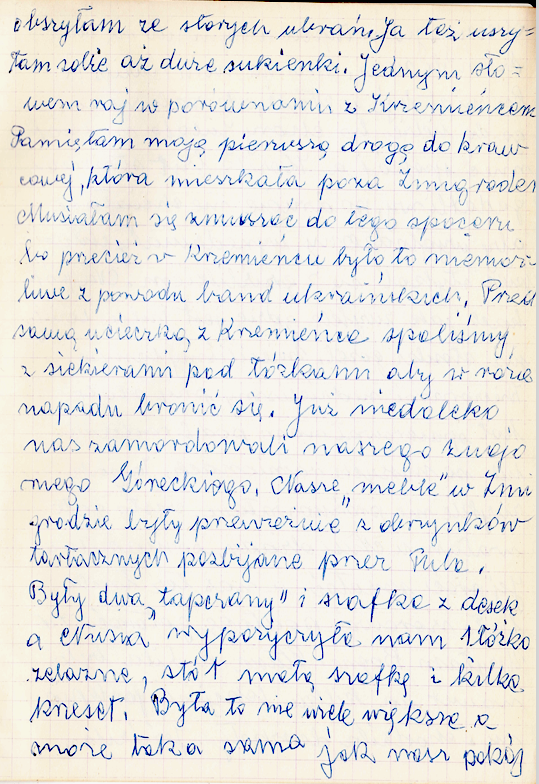 obszyłam ze starych ubrań. Ja też uszy=
łam sobie aż duże sukienki. Jednym sło=
wem raj w porównaniu z Krzemieńcem
Pamiętam moją pierwszą drogę do kraw
cowej, która mieszkała poza Żmigrodem
Musiałam się zmuszać do tego spaceru
bo przecież w Krzemieńcu było to niemoż-
liwe z powodu band ukraińskich. Przed
samą ucieczką z Krzemieńca spaliśmy
z siekierami pod łóżkami aby w razie
napadu bronić się. Już niedaleko
nas zamordowali naszego znajo
mego Góreckiego. Nasze „meble” w Żmi
grodzie były przeważnie z obrzynków
tartacznych pozbijane przez
Były dwa „tapczany” i szafka z desek
a Niusia wypożyczyła nam 1 łóżko
żelazne, stół małą szafkę i kilka
krzeseł. Była to nie wiele większa a
może taka sama jak nasz pokój